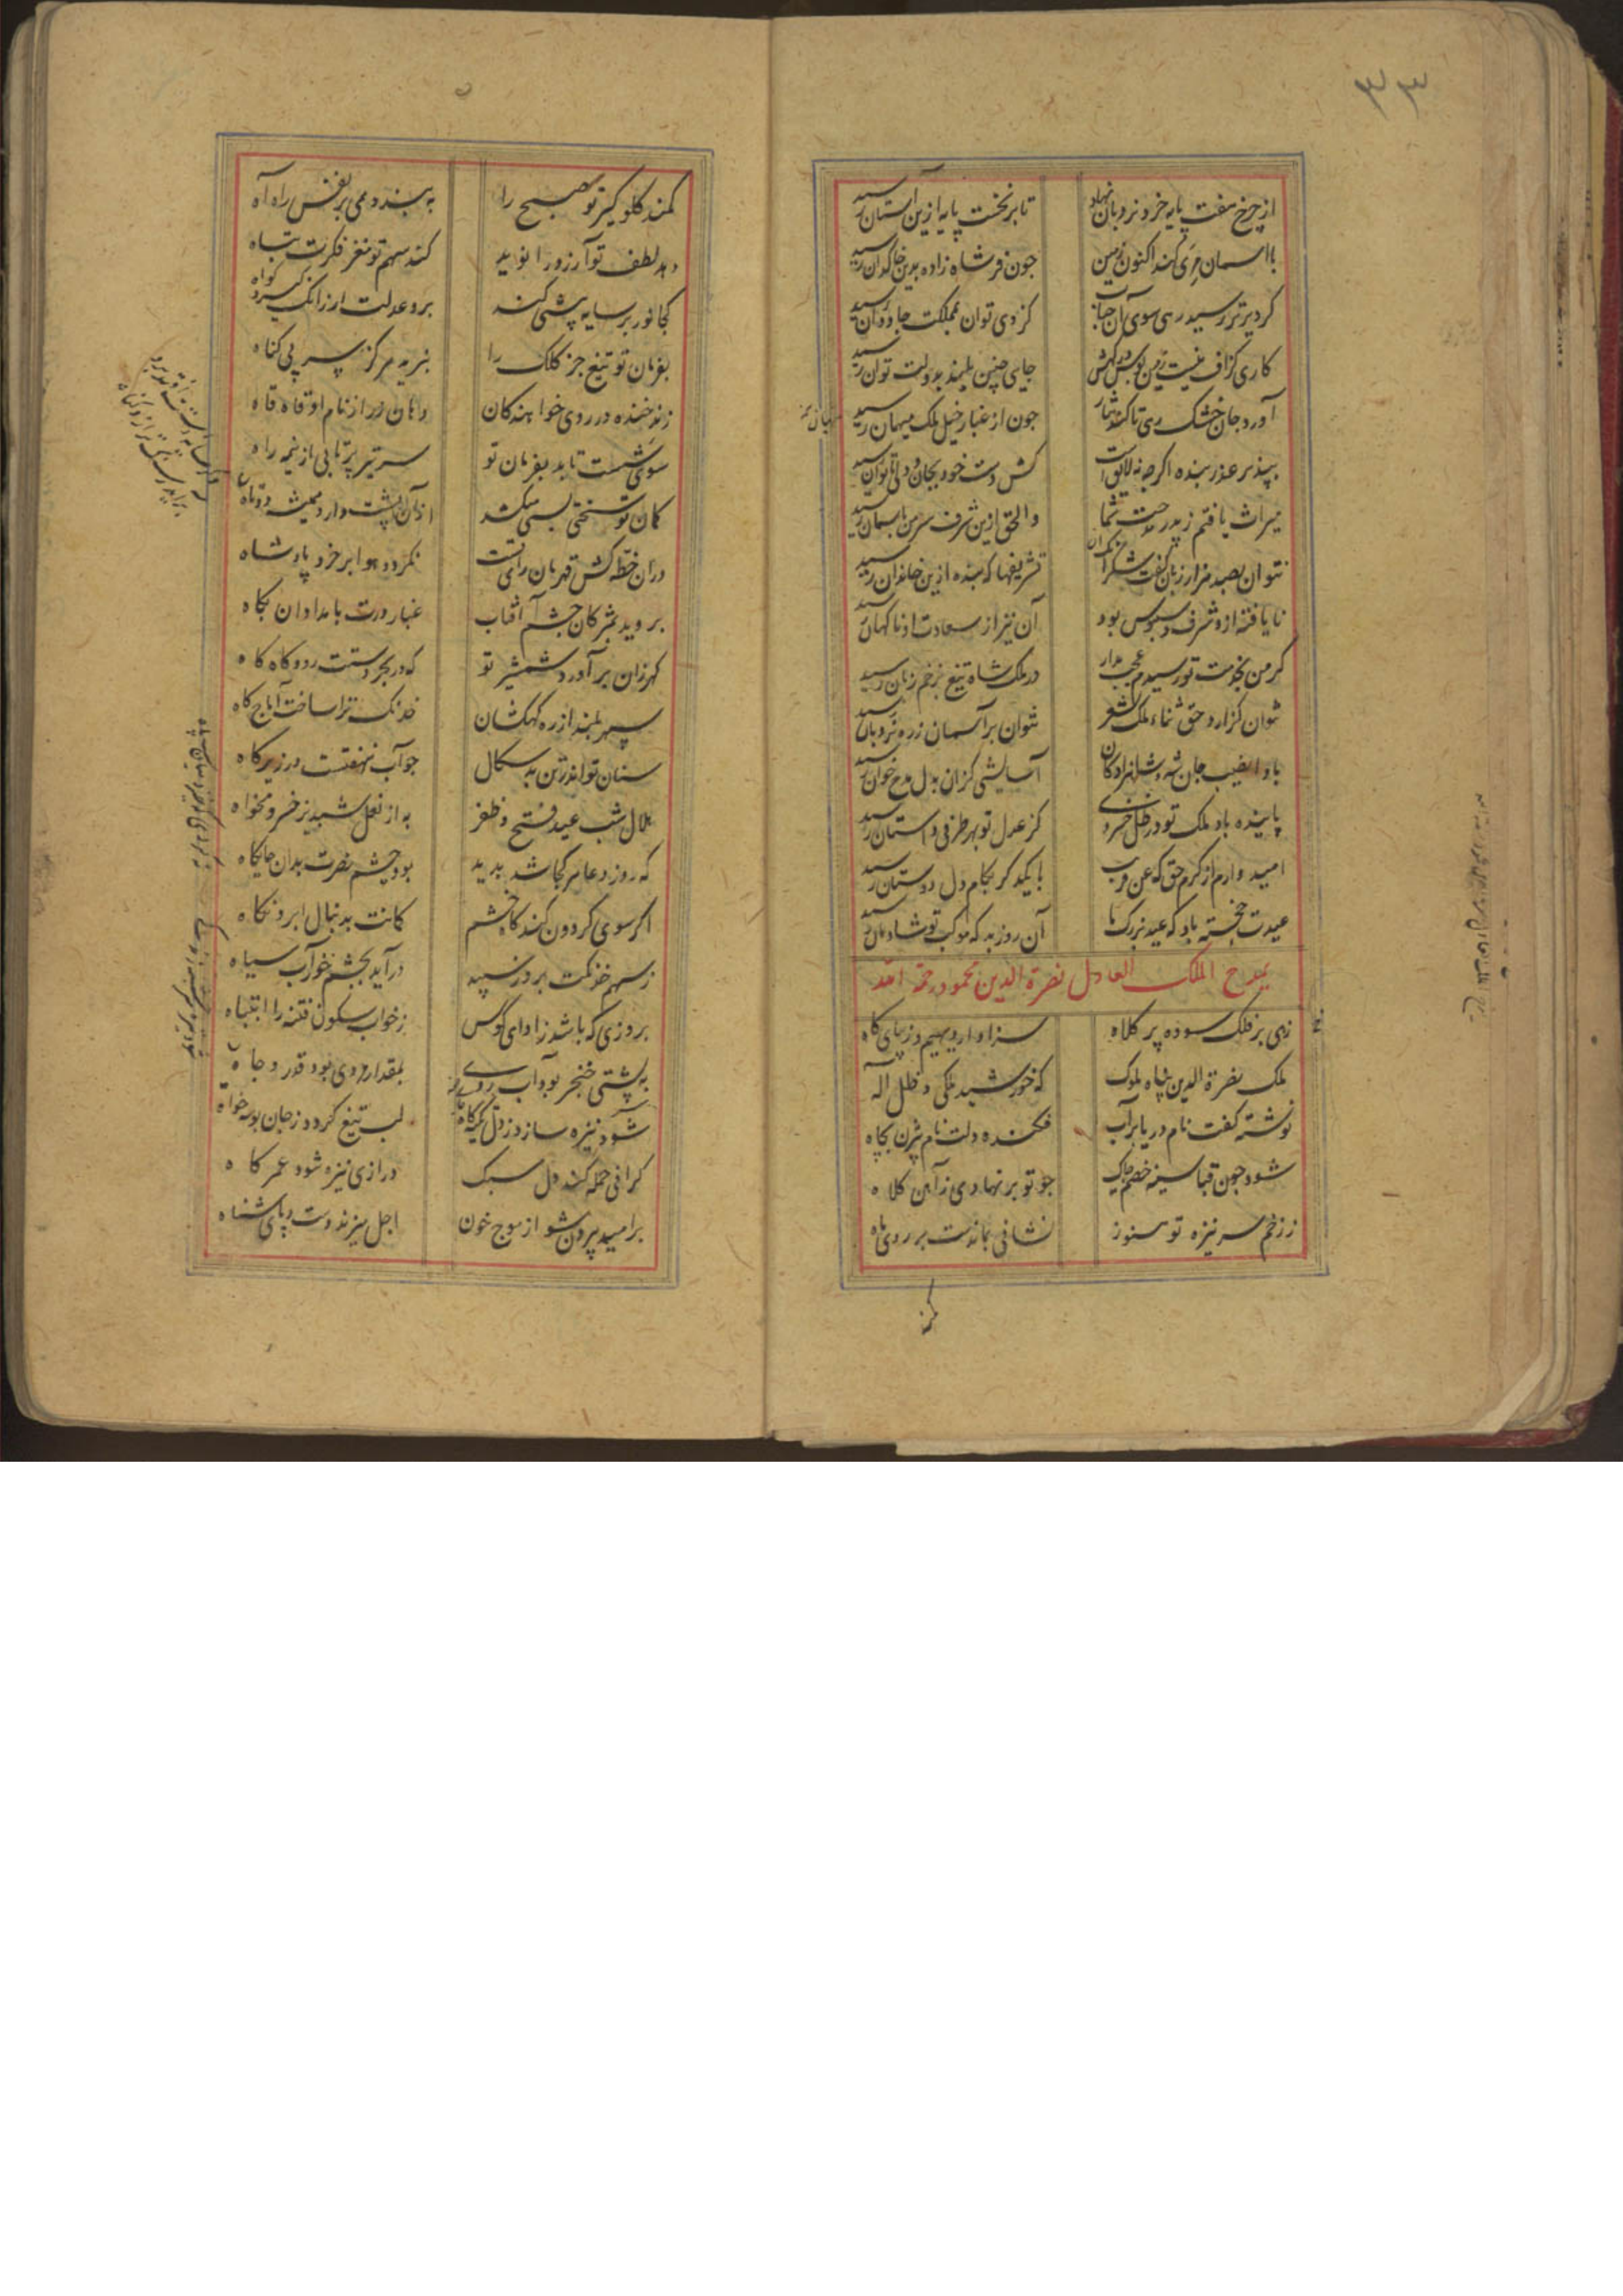 ۳۳
از چرخ هفت پایه خرد نردبان نهاد
تا بر نخست پایه ازین آستان رسید
با آسمان مری کند اکنون زمین
چون فر شاه زاده بدین خاکدان رسید
گر دیرتر رسید رهی سوی آن جناب
کز وی توان بمملکت جاودان رسید
کاری گزاف نیست زمین بوس درگهش
جای چنین بلند بدولت توان رسید
آورد جان خشک رهی تا کند نثار
چون از غبار خیل ملک میهمان رسید
بپذیر عذر بنده اگر چه نه لایق است
کش دست خود بجان و دلی ناتوان رسید
میراث یافتم ز پدر خدمت شما
والحق ازین شرف سر من بآسمان رسید
نتوان بصد هزار زبان گفت شکر آن
تشریفها که بنده ازین خاندان رسید
نایافته ازو شرف دستبوس بود
آن نیز از سعادت او ناگهان رسید
گر من بخدمت تو رسیدم عجب مدار
در ملک شاه تیغ بزخم زبان رسید
نتوان گزارد حق ثناء ملک بشعر
نتوان بر آسمان ز ره نردبان رسید
بادا نصیب جان شه و شاهزادگان
آسایشی کزان بدل مدح خوان رسید
پاینده باد ملک تو در ظل خسروی
کز عدل تو بهر طرفی داستان رسید
امید وارم از کرم حق که عن قریب
با یکدگر بکام دل دوستان رسید
عیدت خجسته باد که عید بزرگ ما
آن روز بد که موکب تو شادمان رسید
بمدح الملک العادل نصرة الدین محمود رحمة الله
زهی بر فلک سوده پر کلاه
سزاوار دیهیم و زیبای گاه
ملک نصرة الدین پناه ملوک
که خورشید ملکی و ظل اله
نوشته کفت نام دریا بر آب
فکنده دلت نام بیژن بچاه
شود چون قبا سینه خصم چاک
چو تو بر نهادی ز آهن کلاه
ز زخم سر نیزه تو هنوز
نشانی بماندست بر روی ماه
کمند
کمند گلو گیر تو صبح را
به بندد همی بر نفس راه آه
دهد لطف تو آرزو را نوید
کند سهم تو مغز فکرت تباه
کجا نور بر سایه پیشی کند
برو عدلت ار زانک گیرد گواه
بفرمان تو تیغ جز کلک را
نبرید هرگز سر بی گناه
زند خنده در روی خواهندگان
دهان زر از نام او قاه قاه
سوی شست تابد بفرمان تو
سر تیر پرتابی از نیمه راه
کمان تو سختی بسی میکشد
از آن پشت دارد همیشه دوتاه
دران خطه کش قهرمان رای تست
نگردد هوا بر خرد پادشاه
بروید بمژگان چشم آفتاب
غبار درت بامدادان پگاه
گهر زان بر آورد شمشیر تو
که در بحر دستت رود گاه گاه
سپهر بلند از ره کهکشان
خدنگ ترا ساخت آماج گاه
سنان تو اندر تن بد سگال
چو آب نهفتست در زیر کاه
هلال شب عید فتح و ظفر
به از نعل شبدیز خسرو مخواه
که روز دعا هر کجا شد پدید
بود چشم نصرت بدان جایگاه
اگر سوی گردون کند گاه خشم
کمانت بدنبال ابرو نگاه
ز سهم خدنگت بروز سپید
درآید بچشم خور آب سیاه
بروزی که باشد ز آوای کوس
ز خواب سکون فتنه را انتباه
به پشتی خنجر بود آب روی
بمقدار مردی بود قدر و جاه
شود نیزه سازد ز دل تکیه گاه
لب تیغ گردد ز جان بوسه خواه
گرانی حمله کند دل سبک
درازی نیزه شود عمر کاه
بر امید بیرون شو از موج خون
اجل میزند دست و پای شناه